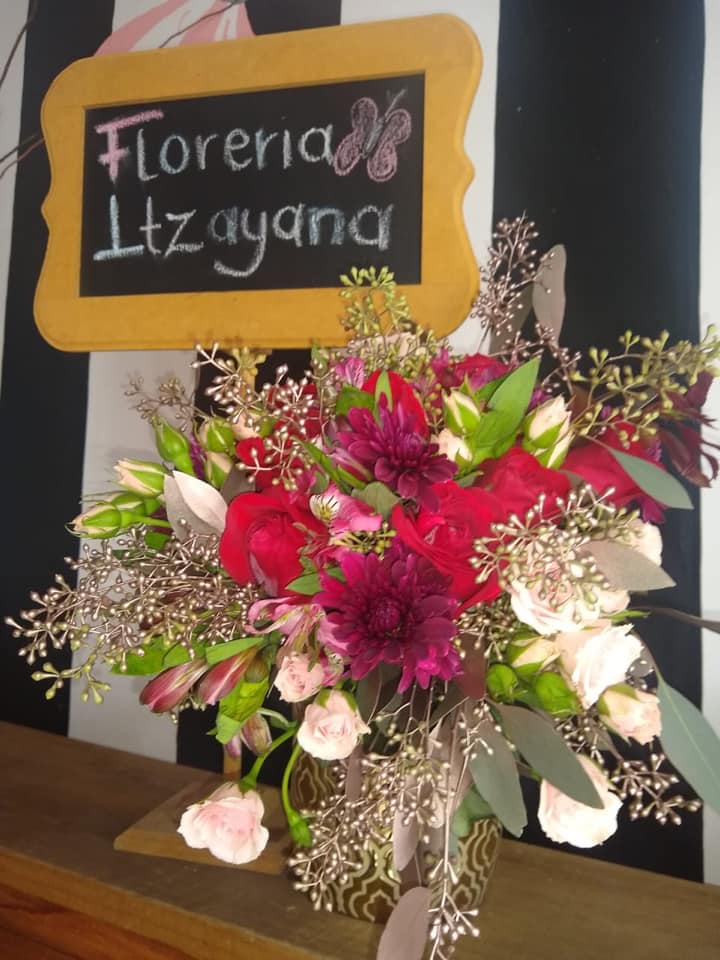 Floreria
Itzayana